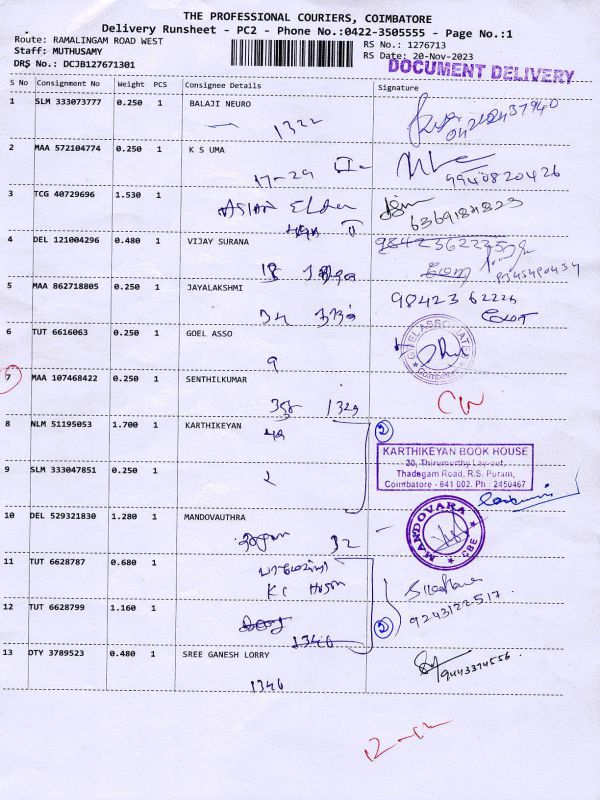 THE PROFESSIONAL COURIERS, COIMBATORE
Delivery Runsheet - PC2 - Phone No.:0422-3505555 - Page No.:1
Route: RAMALINGAM ROAD WEST
RS No.: 1276713
Staff: MUTHUSAMY
RS Date: 20-Nov-2023
DRS No.: DCJB127671301
DOCUMENT DELIVERY
S No Consignment No Weight PCS Consignee Details Signature
1 SLM 333073777 0.250 1 BALAJI NEURO
1322
2 MAA 572104774 0.250 1 K S UMA
17-29 II
9940820426
3 TCG 40729696 1.530 1
ASIAN
4 DEL 121004296 0.480 1 VIJAY SURANA
18
5 MAA 862718805 0.250 1 JAYALAKSHMI
98423 62225
34
6 TUT 6616063 0.250 1 GOEL ASSO
GOEL ASSOCIATES
Coimbatore
9
7 MAA 107468422 0.250 1 SENTHILKUMAR
358 1329
8 NLM 51195053 1.700 1 KARTHIKEYAN
49
2
KARTHIKEYAN BOOK HOUSE
30, Thirumurthy Lay-out,
Thadagam Road, R.S. Puram,
Coimbatore - 641 002. Ph : 2450467
9 SLM 333047851 0.250 1
2
10 DEL 529321830 1.280 1 MANDOVAUTHRA
32
MANDOVARA
CBE
11 TUT 6628787 0.680 1
KC
12 TUT 6628799 1.160 1
9243122517
2
1346
13 OTY 3789523 0.480 1 SREE GANESH LORRY
9443374556
1346
12-12